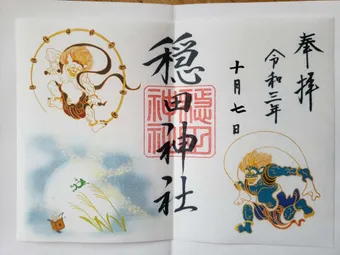 奉拝
令和三年
十月七日
穏田神社
穏田神社